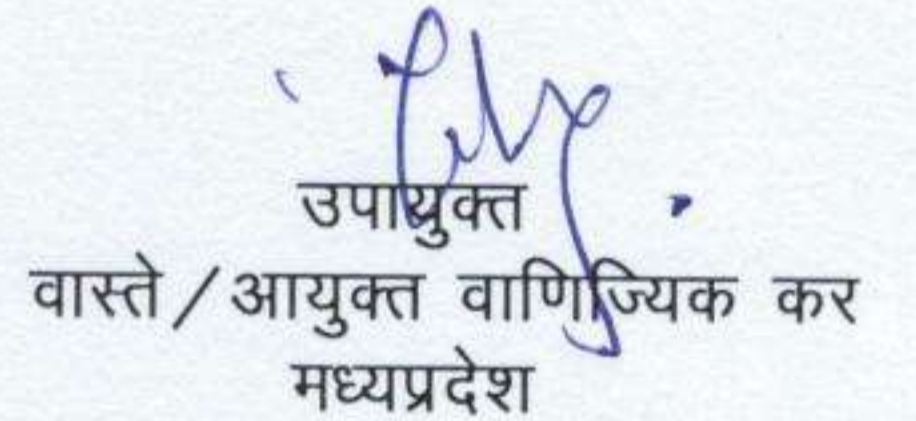 उपायुक्त
वास्ते / आयुक्त वाणिज्यिक कर
मध्यप्रदेश